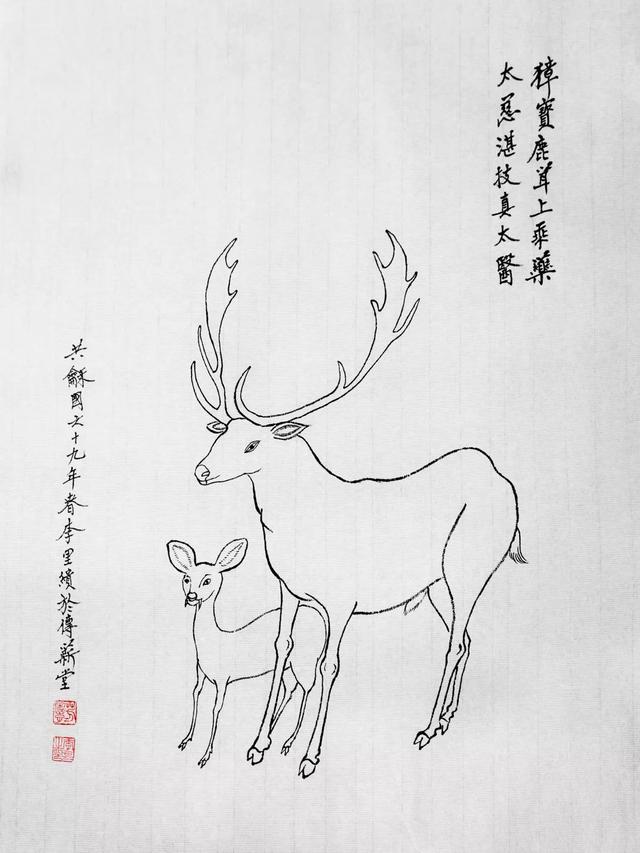 獐寶鹿茸上乘藥
太慈湛技真太醫
共龢國六十九年春李里繢於傳薪堂